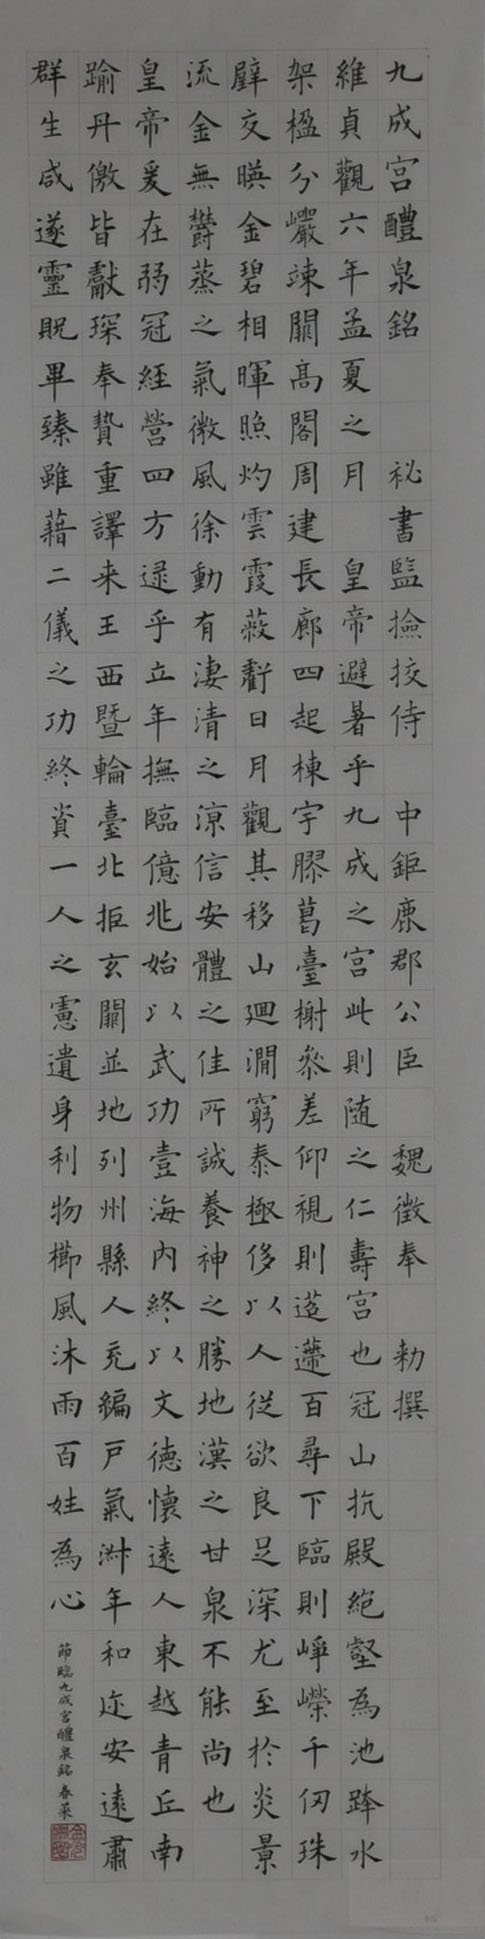 九成宮醴泉銘 祕書監撿挍侍 中鉅鹿郡公臣 魏徵奉 勑撰
維貞觀六年孟夏之月 皇帝避暑乎九成之宮此則随之仁壽宮也冠山抗殿絶壑為池跨水
架楹分巖竦闕高閣周建長廊四起棟宇膠葛臺榭叅差仰視則迢遰百尋下臨則崢嶸千仞珠
壁交暎金碧相暉照灼雲霞蔽虧日月觀其移山迴澗窮泰極侈以人從欲良足深尤至於炎景
流金無欝蒸之氣微風徐動有凄清之涼信安體之佳所誠養神之勝地漢之甘泉不能尚也
皇帝爰在弱冠經營四方逮乎立年撫臨億兆始以武功壹海內終以文德懷遠人東越青丘南
踰丹儌皆獻琛奉贄重譯来王西暨輪臺北拒玄闕並地列州縣人充編戶氣淑年和迩安遠肅
群生咸遂靈貺畢臻雖藉二儀之功終資一人之慮遺身利物櫛風沐雨百姓為心
節臨九成宮醴泉銘 春菓